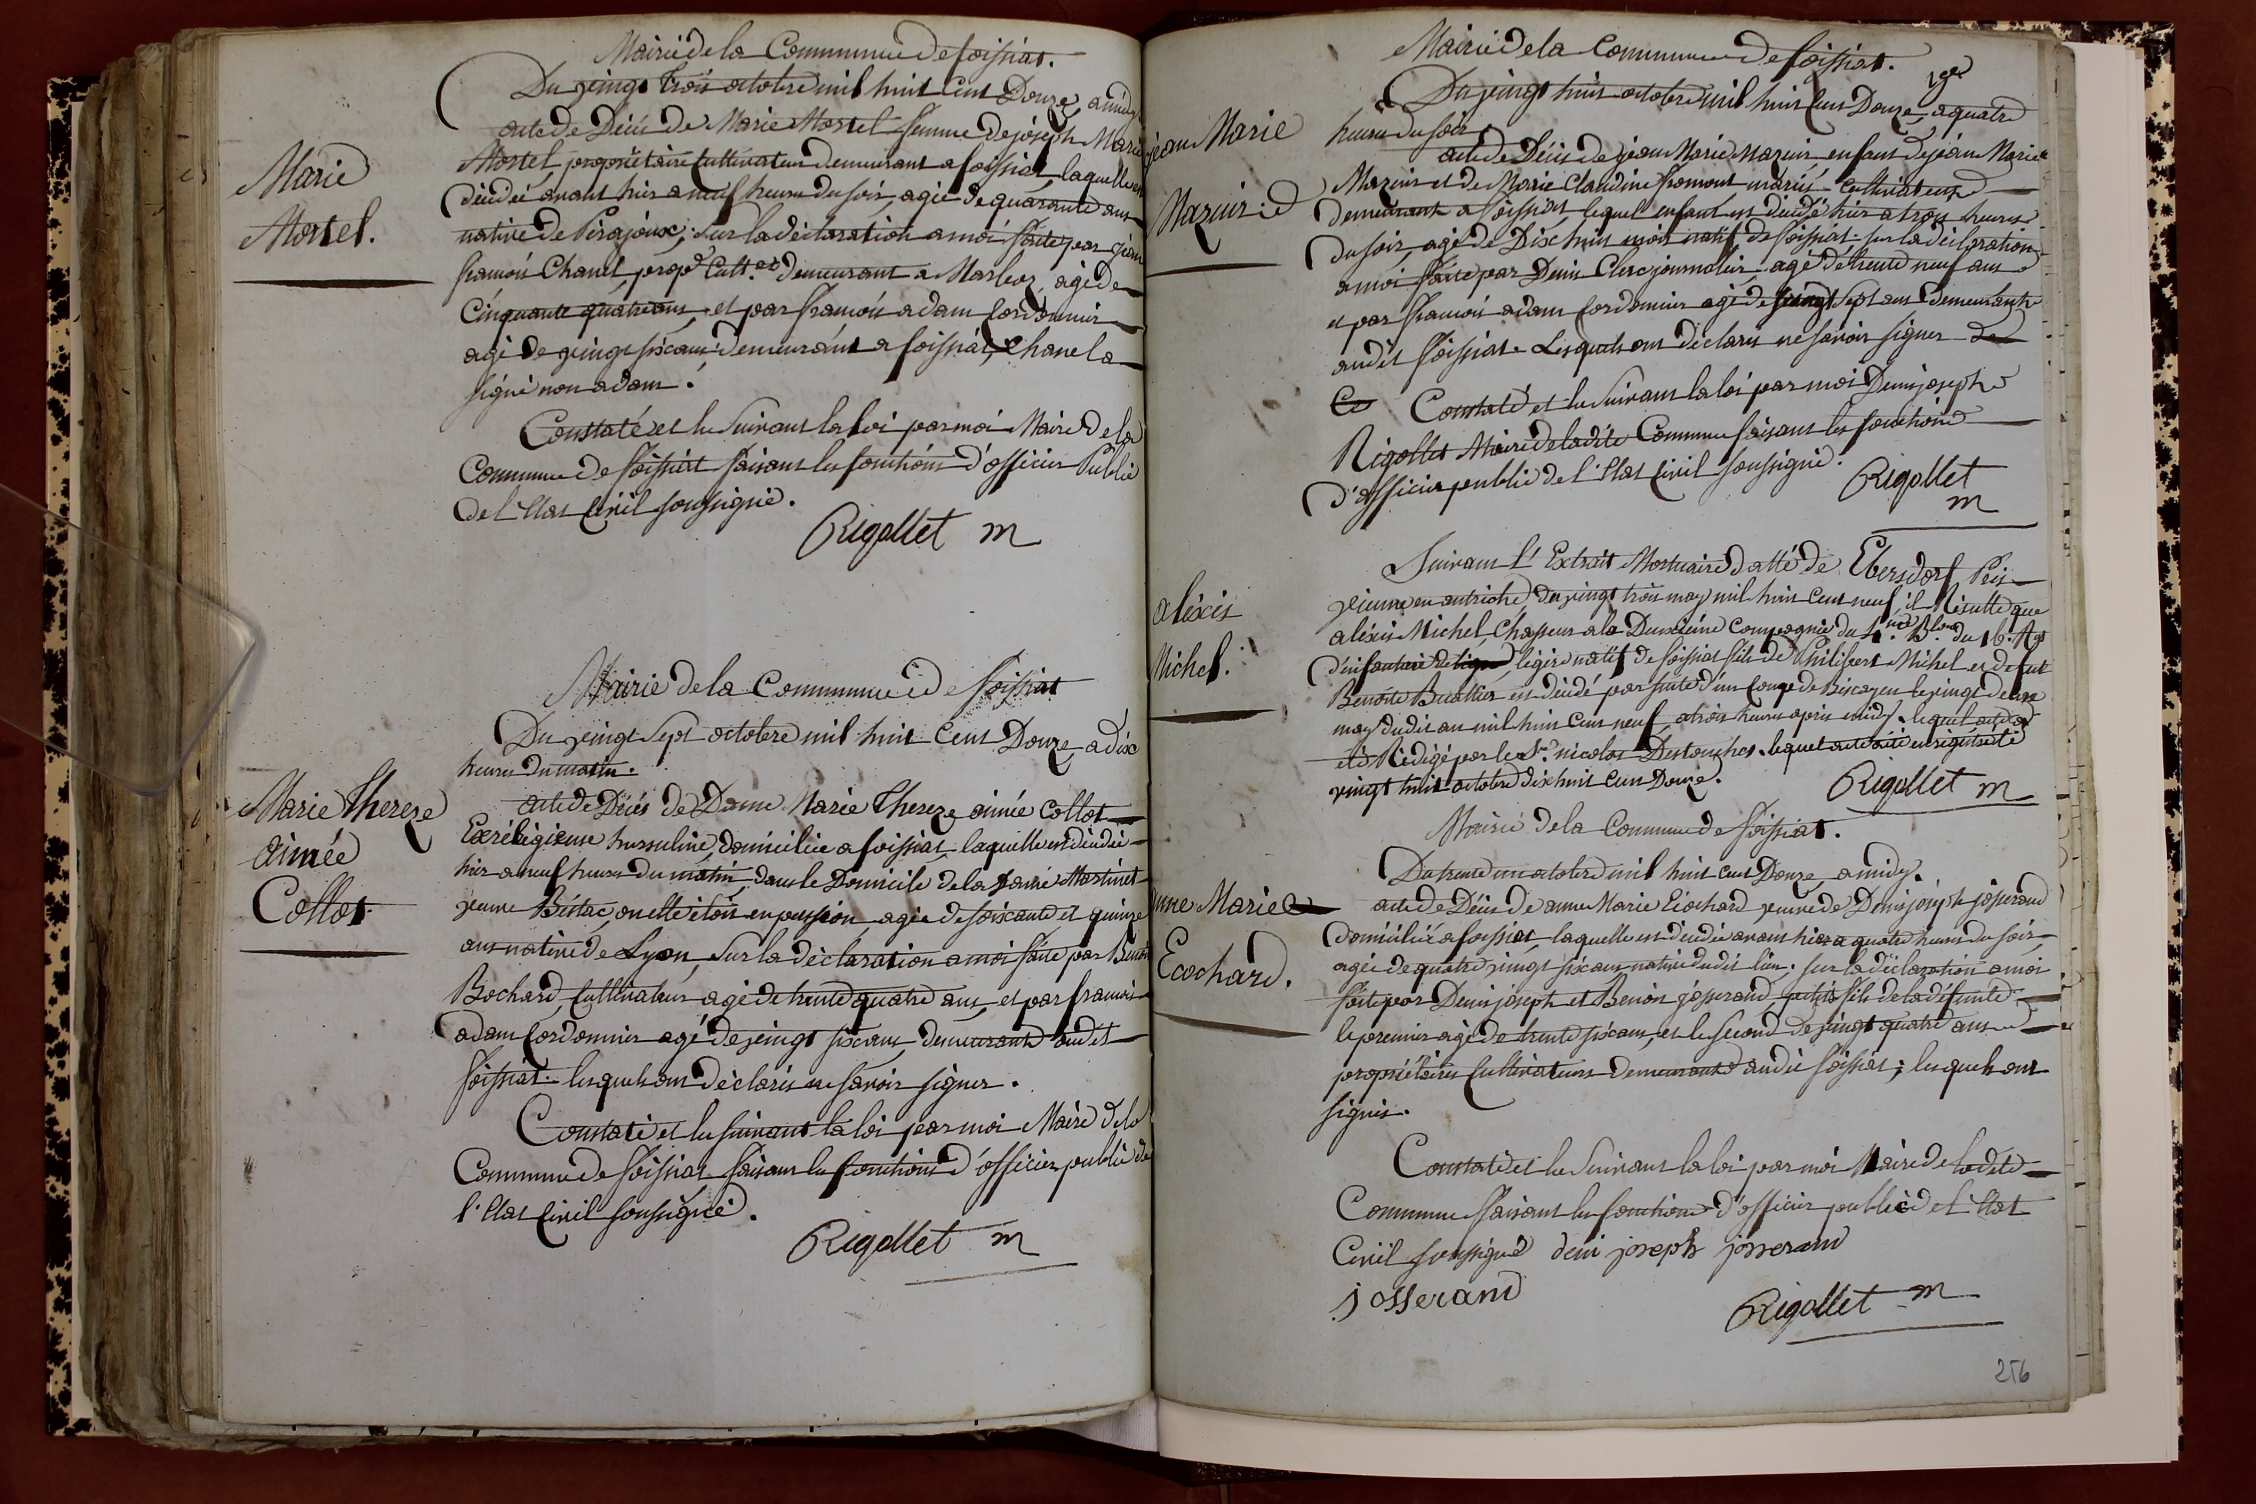 Mairie de la Commune de foissiat.
Du vingt trois octobre mil huit Cent Douze, a midy
Marie
Mortel.
acte de Décés de Marie Mortel femme de joseph Marie
Mortel, propriétaire Cultivateur demeurant a foissiat, laquelle est
décédée avant hier a neuf heures du soir, agée de quarante ans
native de Pirajoux; sur la déclaration a moi faite par jean
francois Chanel, prop.e Cult.er demeurant a Marboz, agé de
Cinquante quatre ans, et par francois adam Cordonnier
agé de vingt six ans demeurant a foissiat, Chanel a
signé non adam.
Constaté et lu suivant la loi par moi Maire de la
Commune de foissiat faisant les fonctions d'officier Public
de l'Etat Civil soussigné.
Rigollet m
Mairie de la Commune de foissiat
Du vingt sept octobre mil huit Cent Douze, a dix
heures du matin.
Marie Thereze
aimée
Collot
acte de Décés de Dame Marie Thereze aimée Collot
Exréligieuse hursuline, domiciliée a foissiat, laquelle est décédée
hier a neuf heures du matin, dans le Domicile de la dame Martinet
veuve Bistac, ou elle étoit en pension, agée de soixante et quinze
ans native de Lyon, sur la déclaration a moi faite par Benoit
Bochard, Cultivateur agé de trente quatre ans, et par francois
adam Cordonnier agé de vingt six ans, demeurants audit
foissiat. lesquels ont déclarés ne savoir signer.
Constaté et lu suivant la loi par moi Maire de la
Commune de foissiat faisant les fonctions d'officier public de
l'Etat Civil soussigné.
Rigollet m
Mairie de la Commune de foissiat.
Du vingt huit octobre mil huit Cent Douze a quatre
heures du soir
jean Marie
Mazuir
acte de Décés de jean Marie Mazuir enfant de jean Marie
Mazuir et de Marie Claudine fromont mariés Cultivateurs
demeurant a foissiat lequel enfant est décédé hier a trois heures
du soir, agé de Dix huit mois natif de foissiat. sur la déclaration
a moi faite par Denis Clerc journalier agé de trente neuf ans
et par francois adam Cordonnier agé de vingt sept ans demeurants
audit foissiat. Lesquels ont déclarés ne savoir signer de
Ce Constaté et lu suivant la loi par moi Denis joseph
Rigollet Maire de ladite Commune faisant les fonctions
d'officier public de l'Etat Civil soussigné.
Rigollet
m
alexis
Michel.
Suivant l'Extrait Mortuaire datté de Ebersdorf Près
vienne en autriche, du vingt trois may mil huit Cent neuf, il Résulte que
alexis Michel Chasseur a la Deuxieme Compagnie du 4.me B.lon du 16. Rgt
d'infanterie de ligne, légère natif de foissiat fils de Philibert Michel et de fut
Benoite Buathier est décédé par suite d'un Coup de Biscayen le vingt deux
may dudit an mil huit Cent neuf, a trois heures après midy. lequel acte a
été Rédigé par le S.r nicolas Destouches. lequel acte a été enrégistré le
vingt huit octobre dix huit Cent Douze.
Rigollet m
Mairie de la Commune de foissiat.
Du trente un octobre mil huit Cent Douze a midy.
anne Marie
Ecochard.
acte de Décés de anne Marie Ecochard veuve de Denis joseph josserand
domiciliée a foissiat, laquelle est décédée avant hier a quatre heures du soir
agée de quatre vingt six ans native dudit lieu. sur la déclaration a moi
faite par Denis joseph et Benoit josserand, petits fils de la défunte
le premier agé de trente six ans, et le second de vingt quatre ans
propriétaires Cultivateurs demeurants audit foissiat; lesquels ont
signés.
Constaté et lu suivant la loi par moi Maire de ladite
Commune faisant les fonctions d'officier public de l'Etat
Civil soussigné deni joseph josserand
josserand
Rigollet m
256